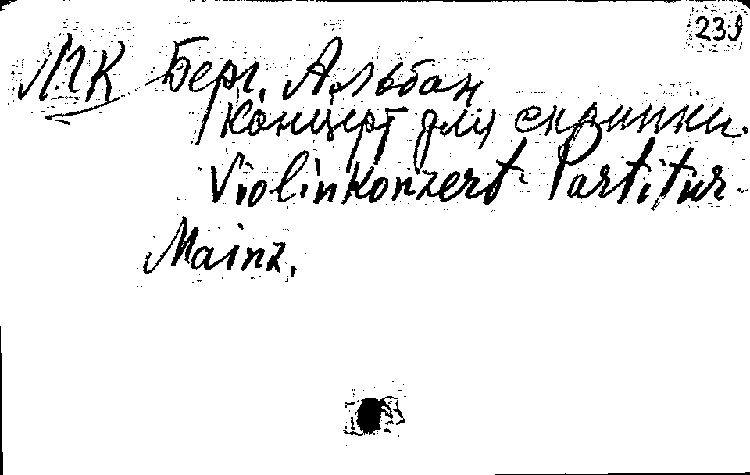 239
МК Берг, Альбан
Концерт для скрипки.
Violinkonzert. Partitur.
Mainz,